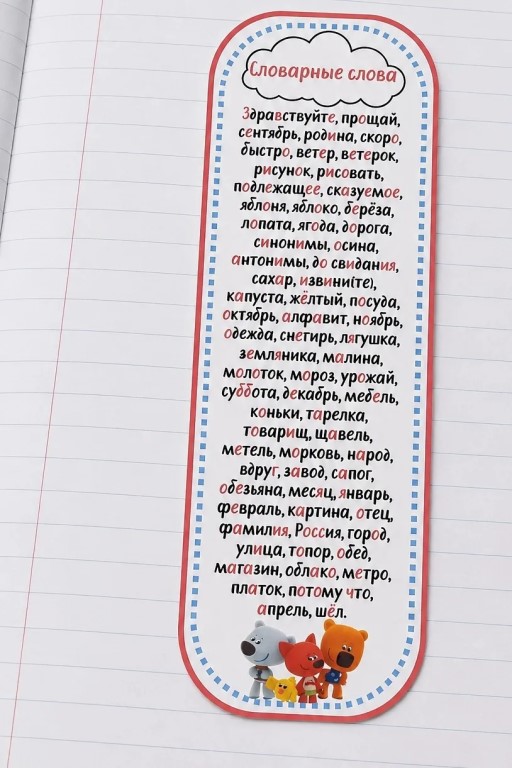 Словарные слова
Здравствуйте, прощай,
сентябрь, родина, скоро,
быстро, ветер, ветерок,
рисунок, рисовать,
подлежащее, сказуемое,
яблоня, яблоко, берёза,
лопата, ягода, дорога,
синонимы, осина,
антонимы, до свидания,
сахар, извини(те),
капуста, жёлтый, посуда,
октябрь, алфавит, ноябрь,
одежда, снегирь, лягушка,
земляника, малина,
молоток, мороз, урожай,
суббота, декабрь, мебель,
коньки, тарелка,
товарищ, щавель,
метель, морковь, народ,
вдруг, завод, сапог,
обезьяна, месяц, январь,
февраль, картина, отец,
фамилия, Россия, город,
улица, топор, обед,
магазин, облако, метро,
платок, потому что,
апрель, шёл.